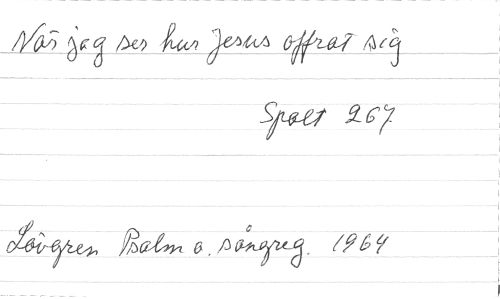 När jag ser hur Jesus offrat sig
Spalt 267.
Lövgren Psalm o. sångreg. 1964